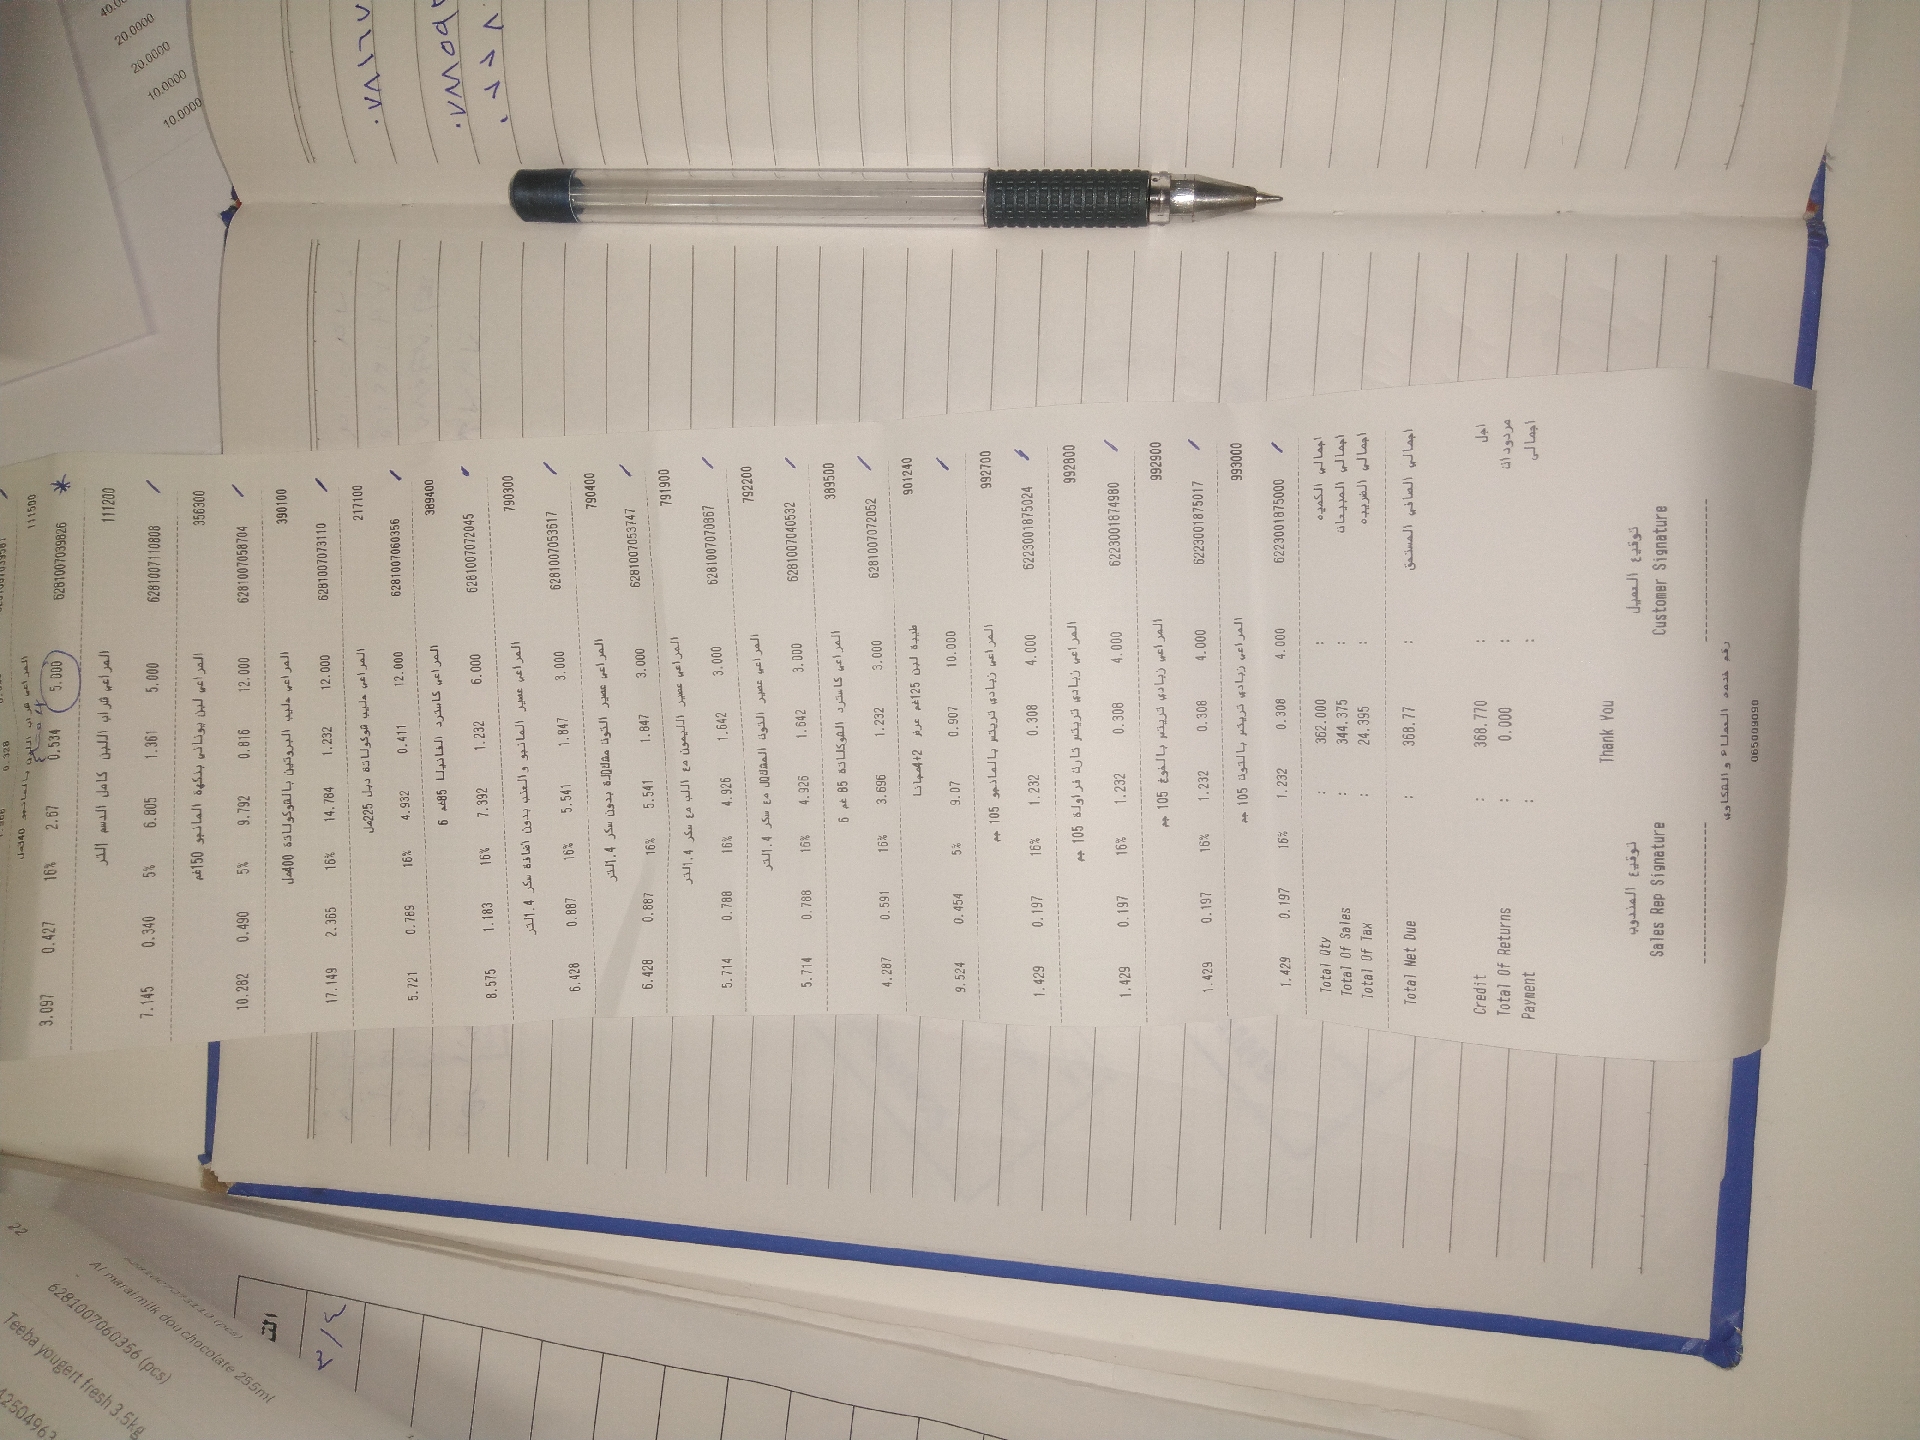 40.0
20.0000
20.0000
10.0000
10.0000
111500
3.097 0.427 16% 2.67 0.534 5.000 6281007039826
المراعي شراب اللبن كامل الدسم 1لتر 111200
7.145 0.340 5% 6.805 1.361 5.000 6281007110808
المراعي لبن يوناني بنكهة المانجو 150غم 356300
10.282 0.490 5% 9.792 0.816 12.000 6281007058704
المراعي حليب البروتين بالشوكولاتة 400مل 390100
17.149 2.365 16% 14.784 1.232 12.000 6281007073110
المراعي حليب شوكولاتة دبل 225مل 217100
5.721 0.789 16% 4.932 0.411 12.000 6281007060356
المراعي كاسترد الفانيلا 85غم 6 389400
8.575 1.183 16% 7.392 1.232 6.000 6281007072045
المراعي عصير المانجو والعنب بدون اضافة سكر 1.4لتر 790300
6.428 0.887 16% 5.541 1.847 3.000 6281007053617
المراعي عصير التوت مشكلة بدون سكر 1.4لتر 790400
6.428 0.887 16% 5.541 1.847 3.000 6281007053747
المراعي عصير الليمون مع اللب مع سكر 1.4لتر 791900
5.714 0.788 16% 4.926 1.642 3.000 6281007070867
المراعي عصير التوت المشكل مع سكر 1.4لتر 792200
5.714 0.788 16% 4.926 1.642 3.000 6281007040532
المراعي كاسترد الشوكلاتة 85 غم 6 389500
4.287 0.591 16% 3.696 1.232 3.000 6281007072052
طيبة لبن 125غم عرض 2+4مجانا 901240
9.524 0.454 5% 9.07 0.907 10.000
المراعي زبادي تريتس بالمانجو 105 جم 992700
1.429 0.197 16% 1.232 0.308 4.000 6223001875024
المراعي زبادي تريتس تارت فراولة 105 جم 992800
1.429 0.197 16% 1.232 0.308 4.000 6223001874980
المراعي زبادي تريتس بالخوخ 105 جم 992900
1.429 0.197 16% 1.232 0.308 4.000 6223001875017
المراعي زبادي تريتس بالتوت 105 جم 993000
1.429 0.197 16% 1.232 0.308 4.000 6223001875000
Total Qty : 362.000 : اجمالي الكميه
Total Of Sales : 344.375 : اجمالي المبيعات
Total Of Tax : 24.395 : اجمالي الضريبه
Total Net Due : 368.77 : اجمالي الصافي المستحق
Credit : 368.770 : اجل
Total Of Returns : 0.000 : مردودات
Payment : : اجمالي
Thank You
توقيع المندوب توقيع العميل
Sales Rep Signature Customer Signature
رقم خدمة العملاء و الشكاوي
065009090
22
Al marai milk dou chocolate 255ml
6281007060356 (pcs)
Teeba yougert fresh 3.5kg